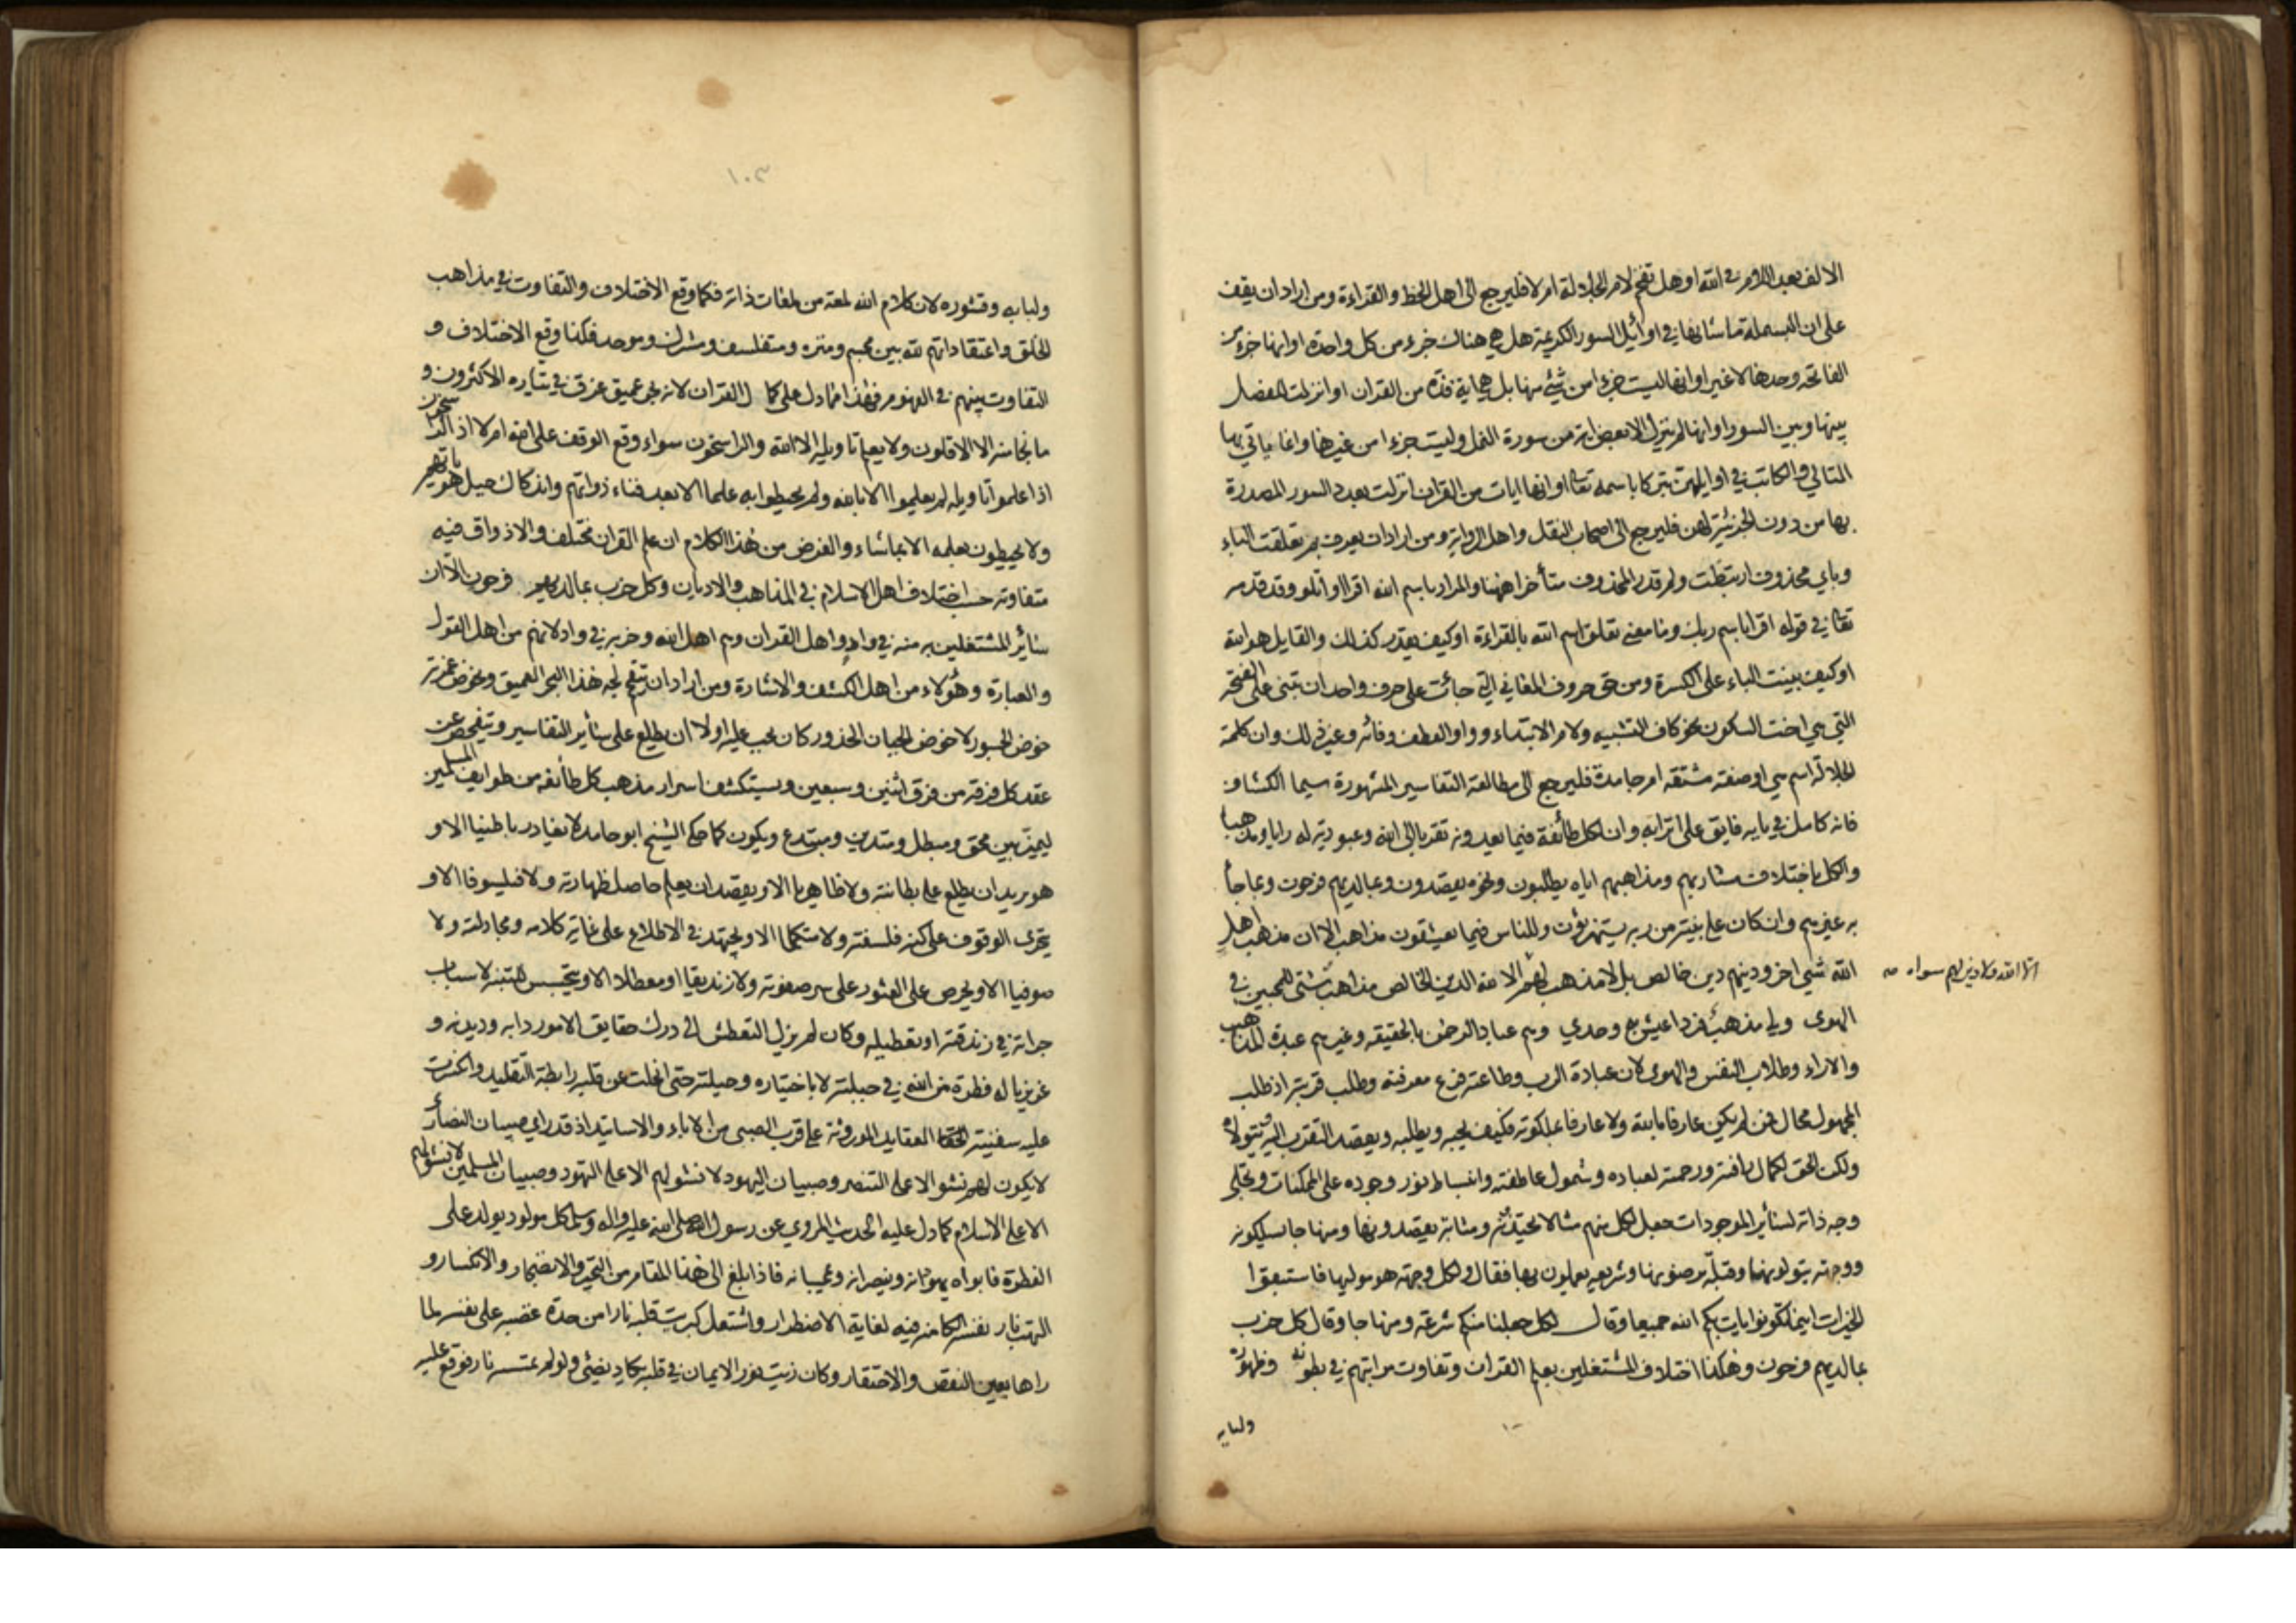 الالف بعد اللام في الله او هل تفخم لام الجلالة ام لا فليرجع الى اهل الخط والقراءة ومن اراد ان يقف
على ان البسملة ما شانها في اوائل السور الكريمة هل هي هناك جزء من كل واحدة او انها جزء من
الفاتحة وحدها لا غير او انها ليست جزءا من شئ منها بل هي اية فذة من القران او انزلت للفصل
بينها وبين السور او انها لم ينزل الا بعض اية من سورة النمل وليست جزءا من غيرها وانما ياتي بها
التالي والكاتب في اوايلهن تبركا باسمه تعا او انها ايات من القران انزلت بعدد السور المصدرة
بها من دون الجزئية لهن فليرجع الى اصحاب النقل واهل الرواية ومن اراد ان يعرف بم تعلقت الباء
وباي محذوف ارتبطت ولم قدر المحذوف متأخرا ههنا والمراد باسم الله اقرا او اتلو وقد قدمه
تعا في قوله اقرا باسم ربك وما معنى تعلق اسم الله بالقراءة او كيف يقدر كذلك والقايل هو الله
او كيف بنيت الباء على الكسرة ومن حق حروف المعاني التي جائت على حرف واحد ان تبنى على الفتحة
التي هي اخت السكون نحو كاف التشبيه ولام الابتداء وواو العطف وفائه وغير ذلك وان كلمة
الجلالة اسم هي او صفة مشتقة ام جامدة فليرجع الى مطالعة التفاسير المشهورة سيما الكشاف
فانه كامل في بابه فايق على اترابه وان لكل طائفة فيما يعدونه تقربا الى الله وعبودية له رايا ومذهبا
والكل باختلاف مشاربهم ومذاهبهم اياه يطلبون ونحوه يقصدون وبما لديهم فرحون وبما جا
به غيرهم وان كان على بينة من ربه يستهزؤن وللناس فيما يعشقون مذاهب الا ان مذهب اهل
الله شئ اخر ودينهم دين خالص بل لا مذهب لهم الا لله الدين الخالص مذاهب شتى للمحبين في
الا الله ولا دين لهم سواه صح
الهوى ولي مذهب فرد اعيش به وحدي وهم عباد الرحمن بالحقيقة وغيرهم عبدة المذاهب
والاراء وطلاب النفس والهوى لان عبادة الرب وطاعته فرع معرفته وطلب قربته اذ طلب
المجهول محال فمن لم يكن عارفا بالله ولا عارفا بملكوته فكيف يحبه ويطلبه ويقصد التقرب اليه ويتولاه
ولكن الحق لكمال رافته ورحمته لعباده وشمول عاطفته وانبساط نور وجوده على الممكنات وتجلى
وجه ذاته لسائر الموجودات جعل لكل منهم مثالا يحتذونه ومثابة يقصدونها ومنهاجا يسلكونه
ووجهة يتولونها وقبلة يرضونها وشريعه يعملون بها فقال ولكل وجهة هو موليها فاستبقوا
الخيرات اينما تكونوا يات بكم الله جميعا وقال لكل جعلنا منكم شرعة ومنهاجا وقال كل حزب
بما لديهم فرحون وهكذا اختلاف المشتغلين بعلم القران وتفاوت مراتبهم في بطونه وظهوره
ولبابه
١٠٣
ولبابه وقشوره لان كلام الله لمعة من لمعات ذاته فكما وقع الاختلاف والتفاوت في مذاهب
الخلق واعتقاداتهم لله بين مجسم ومنزه ومتفلسف ومشرك وموحد فكذا وقع الاختلاف و
التفاوت بينهم في الفهوم فهذا مما دل على كمال القران لانه بحر عميق غرق في تياره الاكثرون و
ما نجا منه الا الاقلون ولا يعلم تاويله الا الله والراسخون سواء وقع الوقف على الله ام لا اذ الراسخون
اذا علموا تاويله لم يعلموا الا بالله ولم يحيطوا به علما الا بعد فناء ذواتهم واندكاك جبل هوياتهم
ولا يحيطون بعلمه الا بما شاء والغرض من هذا الكلام ان علم القران مختلف والاذواق فيه
متفاوتة حسب اختلاف اهل الاسلام في المذاهب والاديان وكل حزب بما لديهم فرحون الا ان
سائر المشتغلين به منه في واد واهل القران وهم اهل الله وحزبه في واد لانهم من اهل القول
والعبارة وهؤلاء من اهل الكشف والاشارة ومن اراد ان يقتحم لجة هذا البحر العميق ويخوض غمرته
خوض الجسور لا خوض الجبان الحذور كان يجب عليه اولا ان يطلع على سائر التفاسير ويتفحص عن
عقد كل فرقة من فرق اثنين وسبعين ويستكشف اسرار مذهب كل طائفه من طوايف المسلمين
ليميز بين محق ومبطل ومتدين ومبتدع ويكون كما حكى الشيخ ابو حامد لا يغادر باطنيا الا و
هو يريد ان يطلع على بطانته ولا ظاهريا الا ويقصد ان يعلم حاصل ظهارته ولا فيلسوفا الا و
يتحرى الوقوف على كنه فلسفته ولا متكلما الا ويجتهد في الاطلاع على غاية كلامه ومجادلته ولا
صوفيا الا ويحرص على العثور على سر صفوته ولا زنديقا او معطلا الا ويتجسس للتنبه لاسباب
جراته في زندقته او تعطيله وكان لم يزل التعطش الى درك حقايق الامور دابه وديدنه و
غريزيا له فطرة من الله في جبلته لا باختياره وحيلته حتى انحلت عن قلبه رابطة التقليد وانكسرت
عليه سفينته العقايد الموروثة على قرب الصبى من الاباء والاساتيد اذ قد راى صبيان النصارى
لا يكون لهم نشو الا على التنصر وصبيان اليهود لا نشو لهم الا على التهود وصبيان المسلمين لا نشو لهم
الا على الاسلام كما دل عليه الحديث المروي عن رسول الله صلى الله عليه واله وسلم كل مولود يولد على
الفطرة فابواه يهودانه وينصرانه ويمجسانه فاذا بلغ الى هذا المقام من التحير والانضجار والانكسار و
التهب نار نفسه الكامنه فيه لغاية الاضطرار واشتعل كبريت قلبه نارا من حدة غضبه على نفسه لما
راها بعين النقص والاحتقار وكان زيت نور الايمان في قلبه يكاد يضئ ولو لم تمسسه نار فوقع عليه